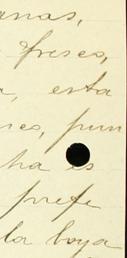 anas,
freses,
a, esta
nes, pun
ha es
prefe
la boya